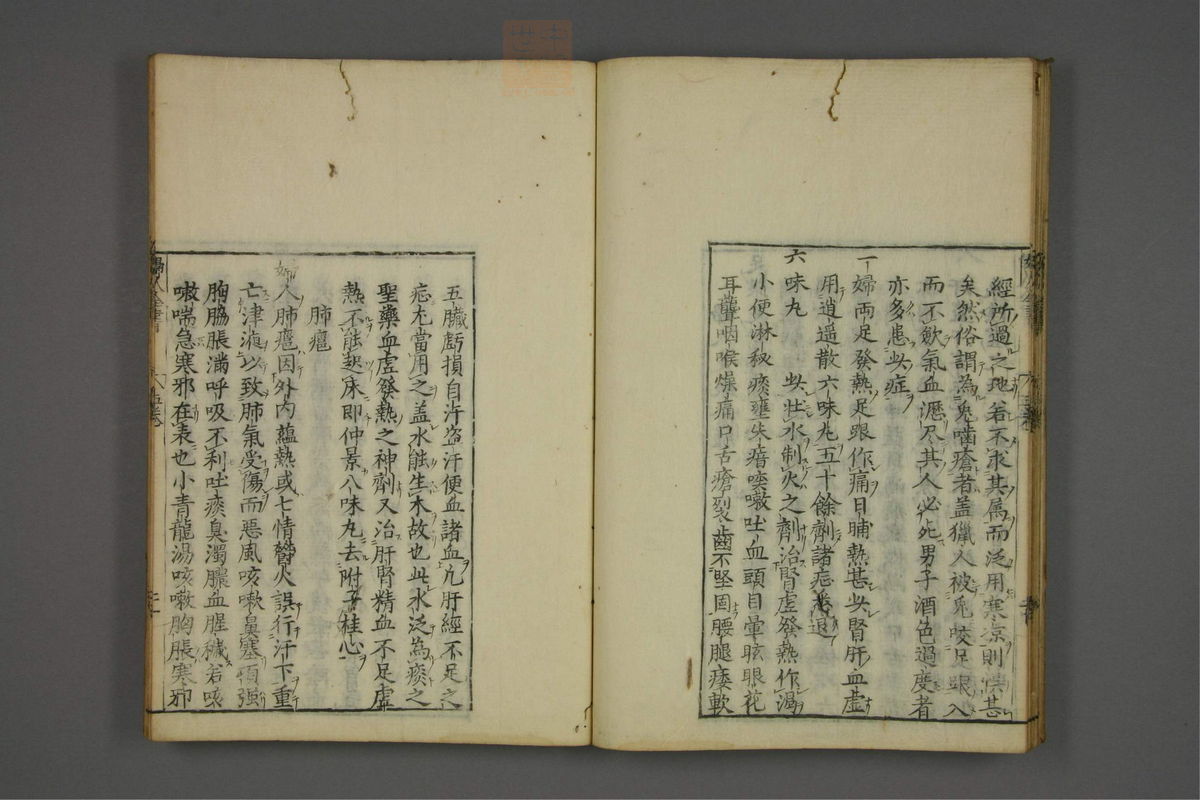 經所過之地若不求其屬而泛用寒凉則悞甚
矣然俗謂為兎嚙瘡者盖獵人被兎咬足跟入
而不歛氣血瀝尽其人必死男子酒色過度者
亦多患此症
一婦両足發熱足跟作痛日晡熱甚此腎肝血虚
用逍遥散六味丸五十餘劑諸症悉退
六味丸　此壮水制火之劑治腎虚發熱作渴
小便淋秘痰壅失瘖咳嗽吐血頭目暈眩眼花
耳聾咽喉燥痛口舌瘡裂齒不堅固腰腿痿軟
五臓虧損自汗盗汗便血諸血凡肝經不足之
症尤當用之盖水能生木故也此水泛為痰之
聖藥血虚發熱之神劑又治肝腎精血不足虚
熱不能起床即仲景八味丸去附子桂心
肺癰
婦人肺癰因外内蘊熱或七情欝火誤行汗下重
亡津液以致肺氣受傷而惡風咳嗽鼻塞項强
胸脇脹滿呼吸不利吐痰臭濁膿血腥穢若咳
嗽喘急寒邪在表也小青龍湯咳嗽胸脹寒邪